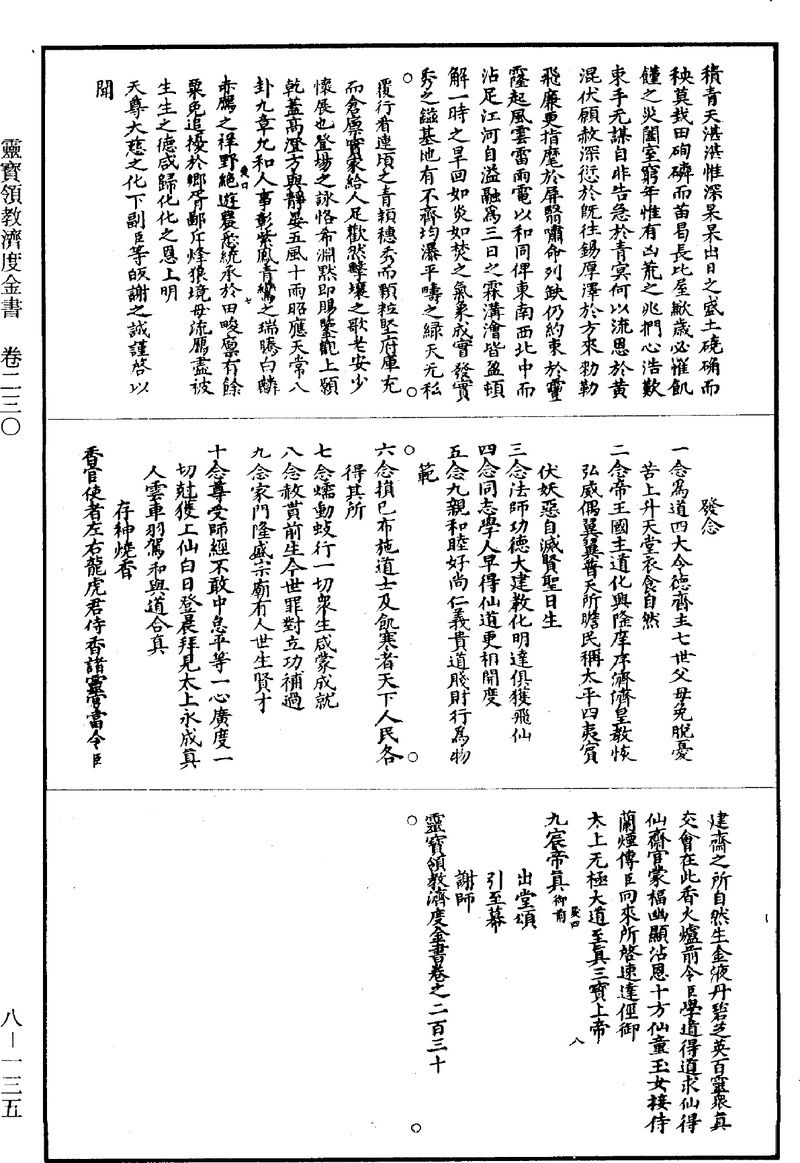 積青天湛湛惟深杲杲出日之盛土磽确而
秧莫栽田甸磷而苗曷長比屋歉歲必罹飢
饉之災闔室窮年惟有凶荒之兆捫心浩歎
束手无謀自非告急於青冥何以流恩於黃
混伏願赦深愆於既往錫厚澤於方來勑勒
飛廉更指麾於屏翳嘯命列缺仍約束於靈
霳起風雲雷雨電以和同俾東南西北中而
沾足江河自溢融為三日之霖溝澮皆盈頓
解一時之旱回如炎如焚之氣氣成實發實
秀之鎡基地有不齊均瀑平疇之綠天无私
覆行看連頃之青穎穗秀而顆粒堅府庫充
而倉廪實家給人足歡然擊壤之歌老安少
懷展也登場之詠恪希淵默即賜鑒觀上願
乾蓋高澄方輿靜晏五風十雨昭應天常八
卦九章允和人事彰紫鳳青鸞之瑞騰白麟
赤鴈之祥野絶遊農悉統承於田畯廪有餘
粟免追捘於鄉胥鄙斥烽狼境毋流鴈盡被
生生之德咸歸化化之恩上明
天尊大慈之化下副臣等皈謝之誠謹啓以
聞
發念
一念為道四大今徳齋主七世父母免脫憂
苦上升天堂衣食自然
二念帝王國主道化興隆庠序濟濟皇教恢
弘威偶翼翼普天所瞻民稱太平四夷賓
伏妖惡自滅賢聖日生
三念法師功德大建教化明達俱獲飛仙
四念同志學人早得仙道更相開度
五念九親和睦好尚仁義貴道賤財行為物
範
六念損己布施道士及飢寒者天下人民各
得其所
七念蠕動蚑行一切衆生咸蒙成就
八念赦貰前生今世罪對立功補過
九念家門隆盛宗廟有人世生賢才
十念尊受師經不敢中怠平等一心廣度一
切尅獲上仙白日登晨拜見太上永成真
人雲車羽駕和與道合真
存神燒香
香官使者左右龍虎君侍香諸靈官當令臣
建齋之所自然生金液丹碧芝英百靈衆真
交會在此香火爐前令臣學道得道求仙得
仙齋官蒙福幽顯沾恩十方仙童玉女接侍
蘭煙傳臣向來所啓速達俓御
太上无極大道至真三寶上帝
九宸帝真御前
出堂頌
引至幕
謝師
靈寶領教濟度金書卷之二百三十
七
八
靈寶領教濟度金書 卷二三〇
八－一三五